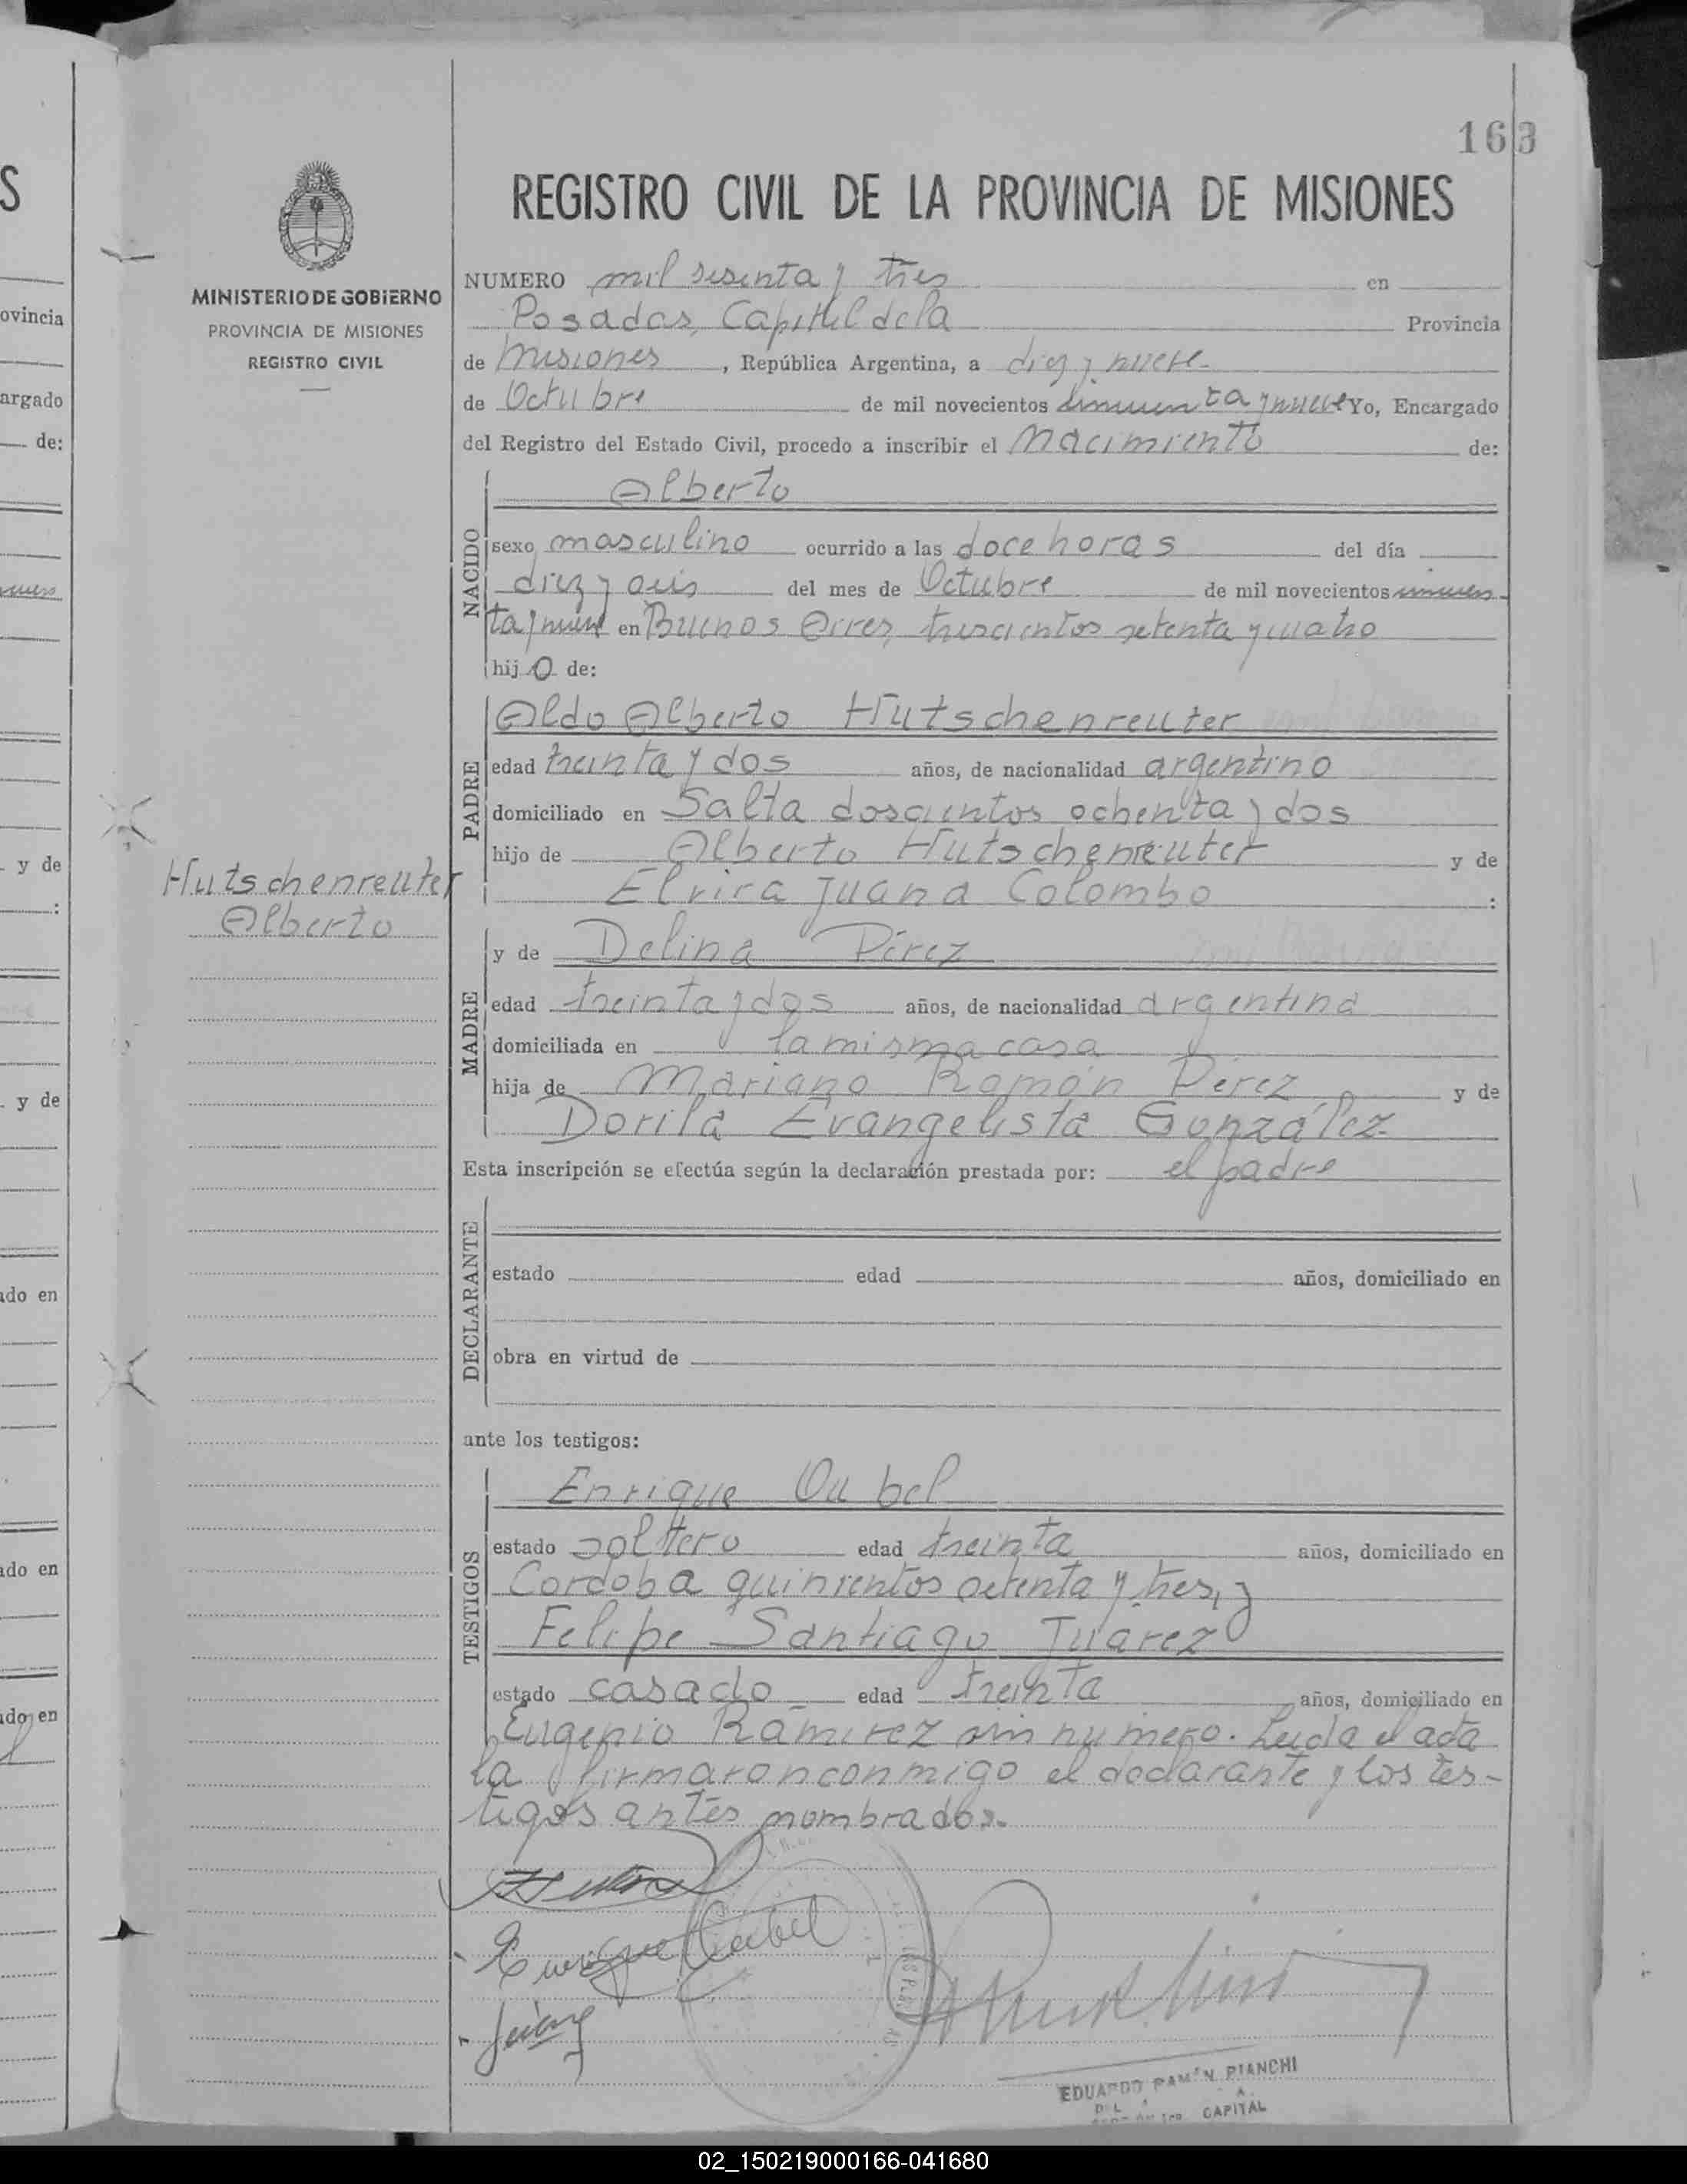 163
REGISTRO CIVIL DE LA PROVINCIA DE MISIONES
MINISTERIO DE GOBIERNO
PROVINCIA DE MISIONES
REGISTRO CIVIL
NUMERO mil sesenta y tres en
Posadas, Capital de la Provincia
de Misiones, República Argentina, a diez y nueve
de Octubre de mil novecientos cincuenta y nueve Yo, Encargado
del Registro del Estado Civil, procedo a inscribir el Nacimiento de:
NACIDO
Alberto
sexo masculino ocurrido a las doce horas del día
diez y seis del mes de Octubre de mil novecientos cincuen-
ta y nueve en Buenos Aires, trescientos setenta y cuatro
hijo de:
PADRE
Aldo Alberto Hutschenreuter
edad treinta y dos años, de nacionalidad argentino
domiciliado en Salta doscientos ochenta y dos
hijo de Alberto Hutschenreuter y de
Elvira Juana Colombo :
Hutschenreuter
Alberto
MADRE
y de Delina Pérez
edad treinta y dos años, de nacionalidad argentina
domiciliada en la misma casa
hija de Mariano Ramón Pérez y de
Dorila Evangelista González
Esta inscripción se efectúa según la declaración prestada por: el padre
DECLARANTE
estado edad años, domiciliado en
obra en virtud de
ante los testigos:
TESTIGOS
Enrique Oubel
estado soltero edad treinta años, domiciliado en
Cordoba quinientos setenta y tres, y
Felipe Santiago Juarez
estado casado edad treinta años, domiciliado en
Eugenio Ramirez sin numero. Leida el acta
la firmaron conmigo el declarante y los tes-
tigos antes nombrados.
Enrique Oubel
EDUARDO RAMÓN PIANCHI
CAPITAL
02_150219000166-041680